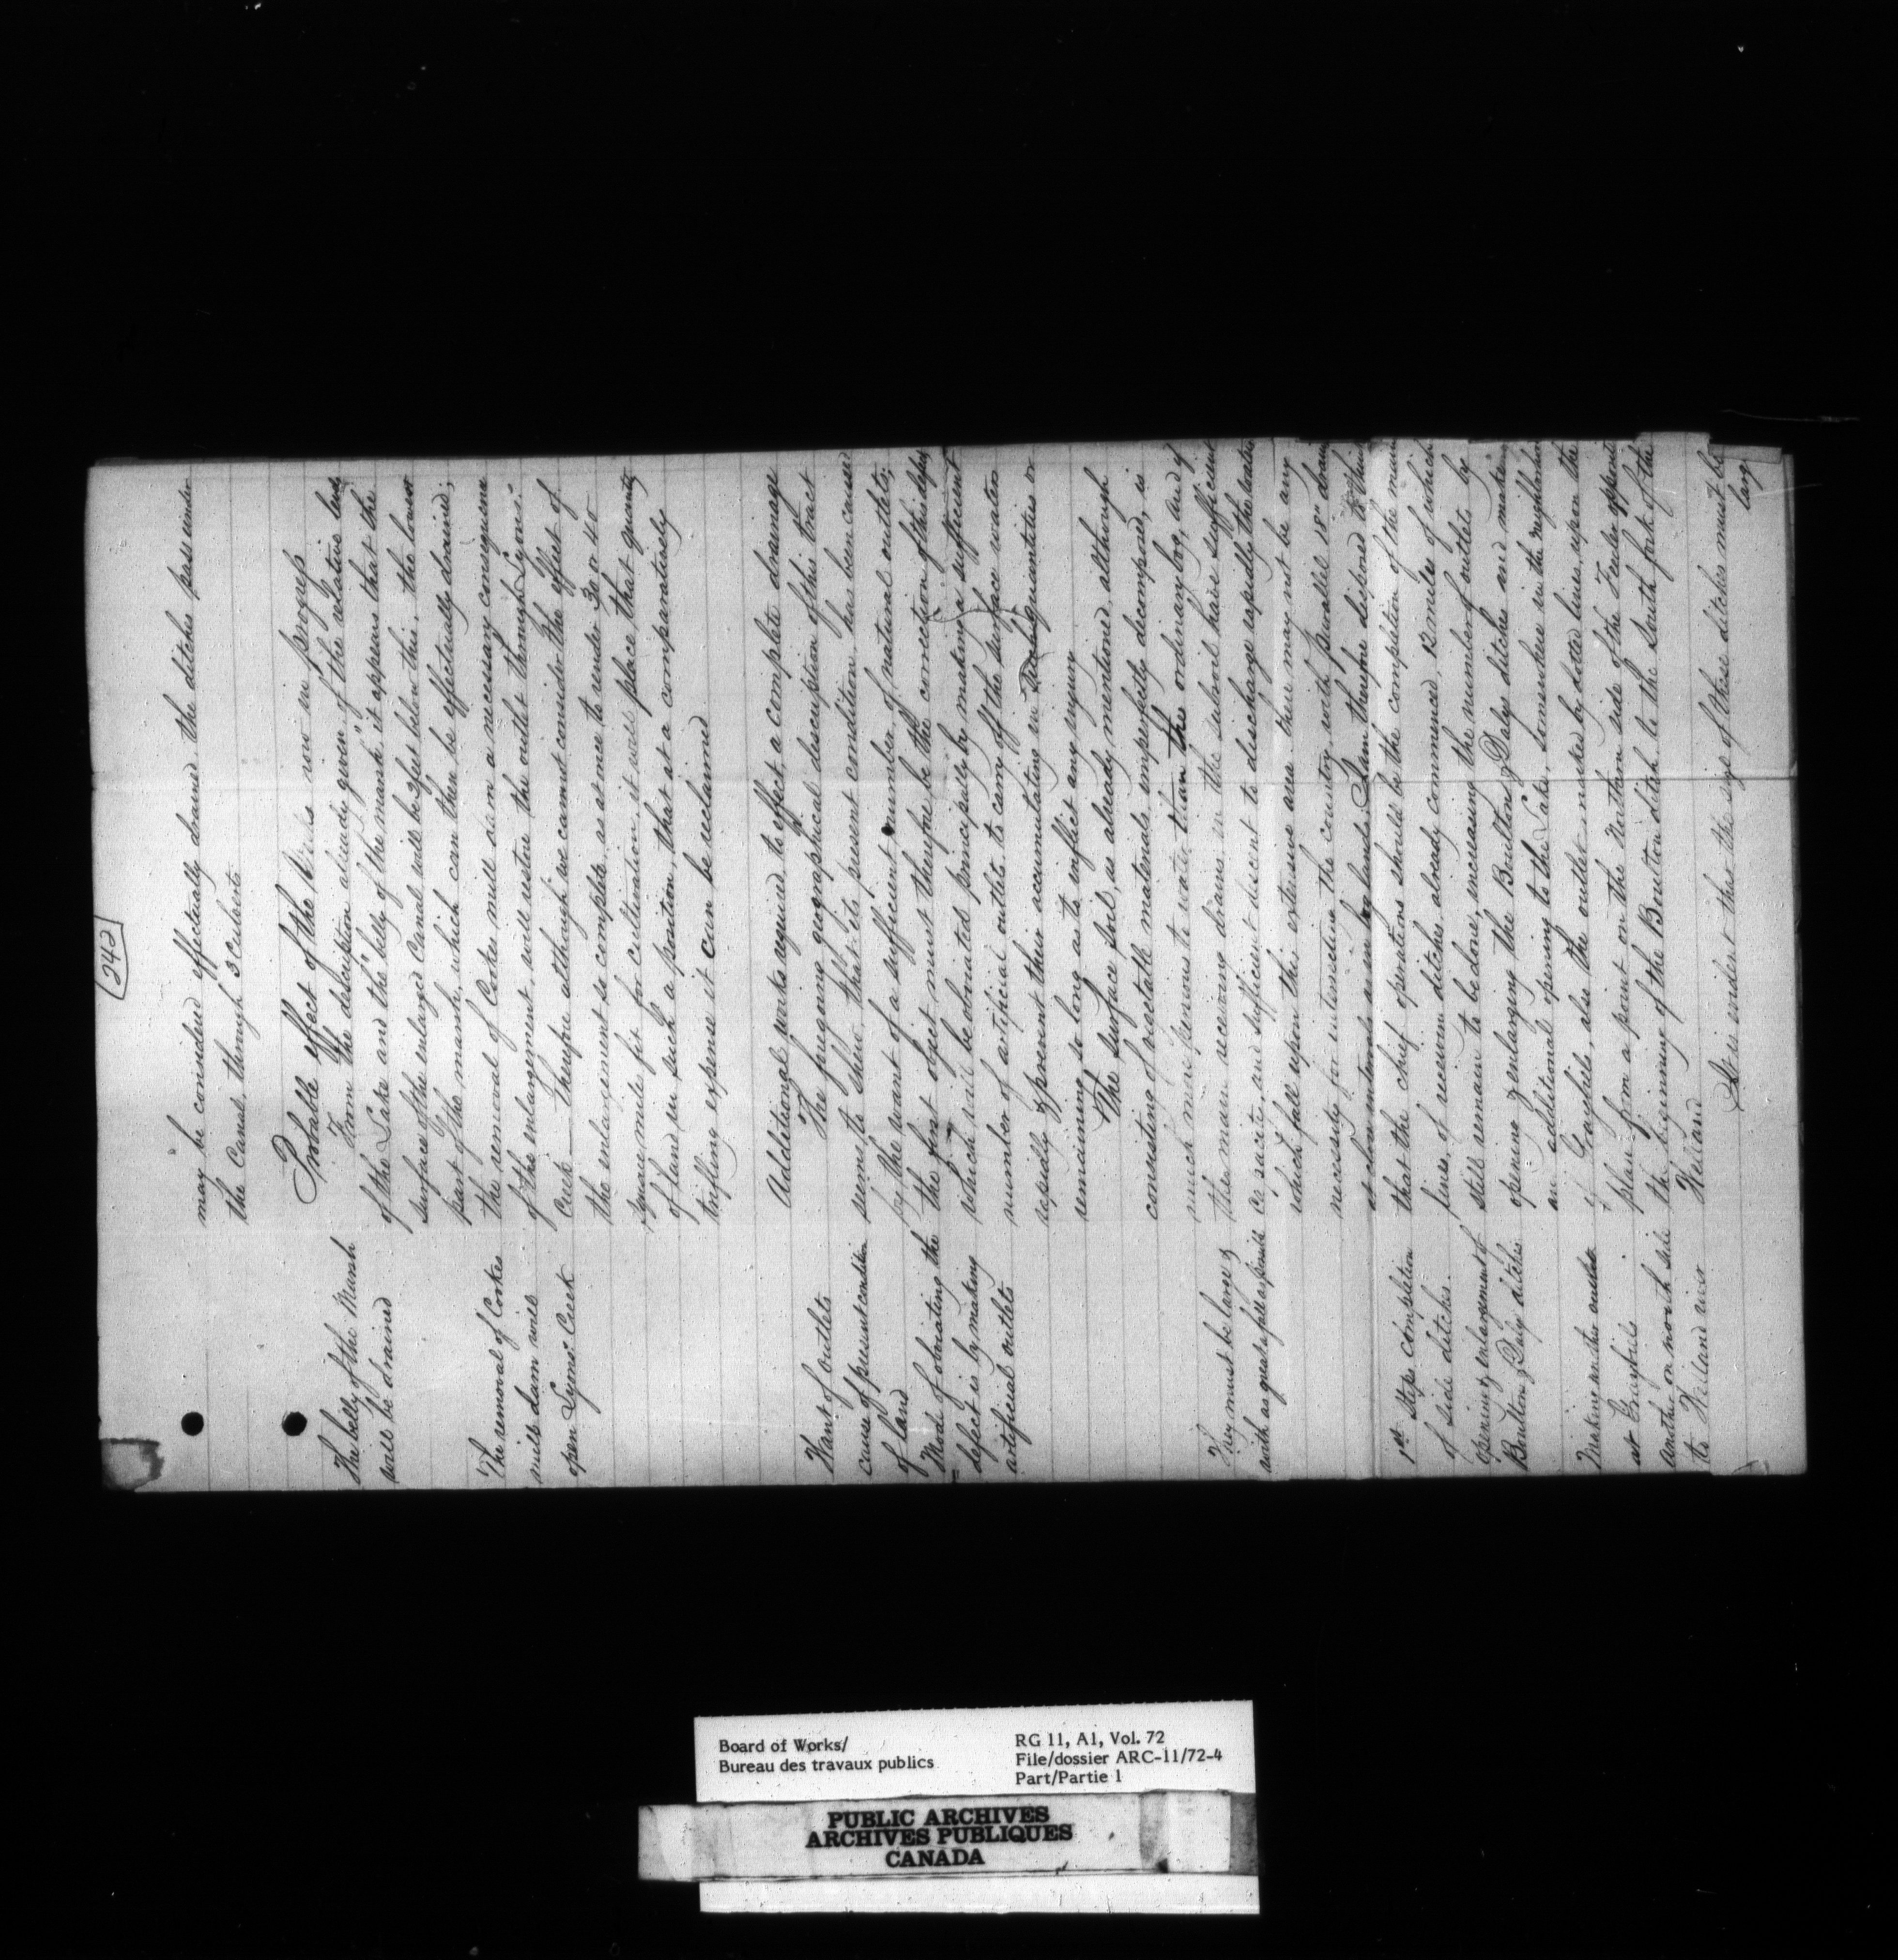 242
may be considered effectually drained, the ditches pass under
the Canal, through 3 Culverts
Probable effect of the Works now in progress
The belly of the Marsh
will be drained
From the description already given of the relative levels
of the Lake and the "belly of the marsh," it appears that the
surface of the enlarged Canal will be 3 feet below this, the lowest
part of the marsh, which can then be effectually drained;
The removal of Cookes
mill dam will
open Lyons' Creek
the removal of Cookes mill dam a necessary consequence
of the enlargement, will restore the outlet through Lyons'
Creek — therefore although we cannot consider the effect of
the enlargement so complete, as at once to render 30 or 40
square miles fit for cultivation, it will place that quantity
of land in such a position, that at a comparatively
trifling expense it can be reclaimed
Additional works required, to effect a complete drainage
Want of outlets
cause of present condition
of land
The foregoing geographical description of this tract
seems to shew, that its present condition, has been caused
by the want of a sufficient number of natural outlets;
Mode of obviating the
defect is by making
artificial outlets
the first object must therefore be the correction of this defect
which will be obviated principally by making a sufficient
number of artificial outlets, to carry off the surface water
rapidly & prevent their accumulating in quantities or
remaining so long as to inflict any injury
The surface soil, as already mentioned, although
consisting of vegetable materials imperfectly decomposed, is
much more pervious to water than the ordinary bog, and if
They must be large &
with as great a fall as possible
the main receiving drains, in the subsoil have sufficient
capacity, and sufficient descent to discharge rapidly the water
which falls upon this extensive area there may not be any
necessity for intersecting the country with parallel 18" drains
at short intervals as in bog lands. I am therefore disposed to think
1st Steps completion
of side ditches.
that the chief operations should be the completion of the main
lines, of receiving ditches, already commenced, 12 miles of which
opening & enlargement of
Boulton & Daly ditches
still remain to be done, increasing the number of outlets by
opening & enlarging the Boulton & Dalys ditches and making
an additional opening to the Lake, somewhere in the neighborhood
Making another outlet
at Graybiels
another on north side
to Welland river
of Graybiels, also the outlet marked by dotted lines upon the
plan from a point on the Northern side of the Feeder opposite
the beginning of the Boulton ditch to the South fork of the
Welland
It is evident that the size of these ditches must be
larg
Board of Works/
Bureau des travaux publics
RG 11, A1, Vol. 72
File/dossier ARC-11/72-4
Part/Partie 1
PUBLIC ARCHIVES
ARCHIVES PUBLIQUES
CANADA